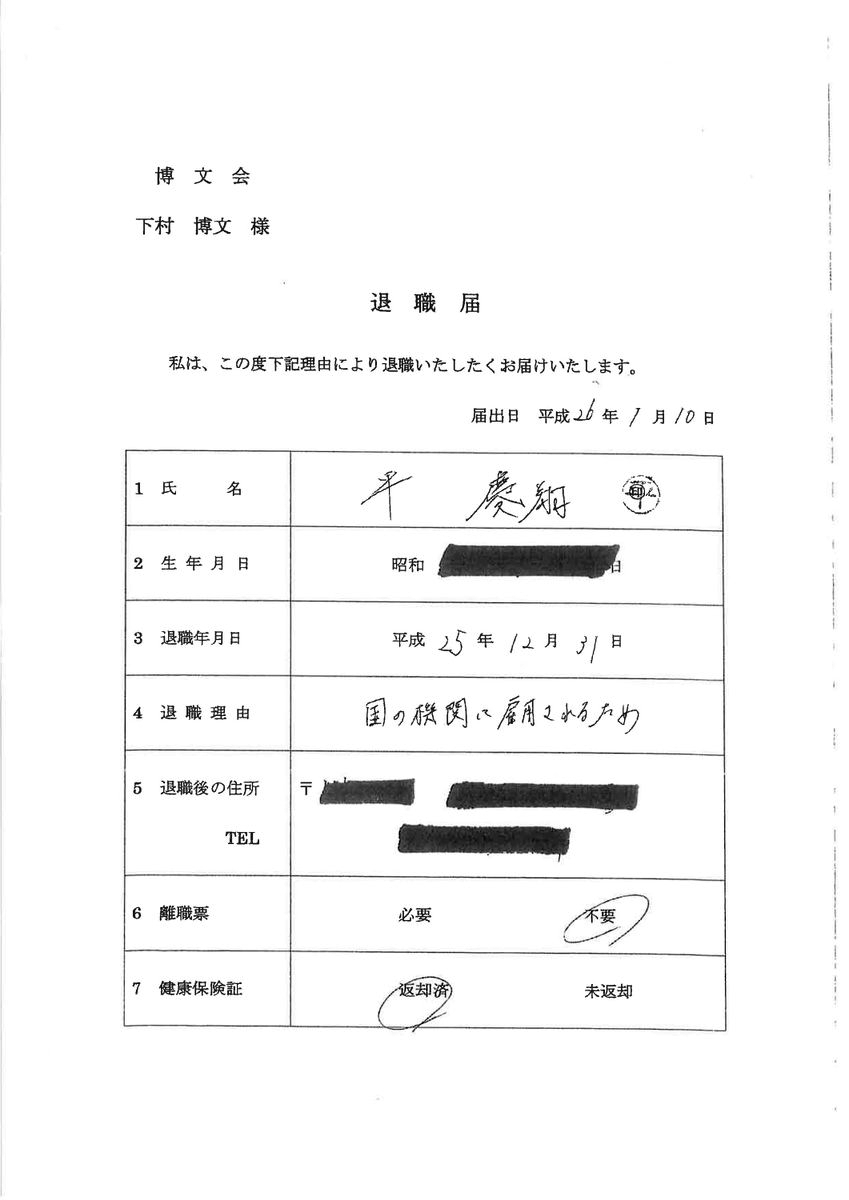 博文会
下村 博文 様
退職届
私は、この度下記理由により退職いたしたくお届けいたします。
届出日 平成26年1月10日
1 氏名 平 慶翔 印
2 生年月日 昭和 日
3 退職年月日 平成25年12月31日
4 退職理由 国の機関に雇用されるため
5 退職後の住所 〒
TEL
6 離職票 必要 不要
7 健康保険証 返却済 未返却